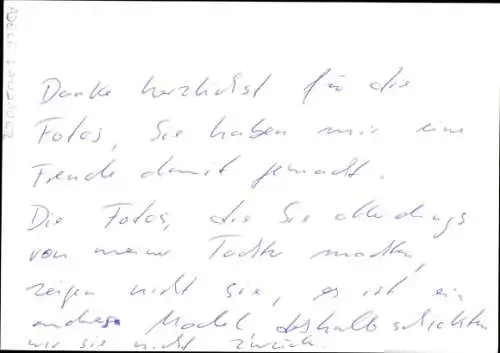 Danke herzlichst für die
Fotos, Sie haben mir eine
Freude damit gemacht.
Die Fotos, die Sie allerdings
von meiner Tochter machten,
zeigen nicht sie, es ist ein
anderes Model deshalb schickten
wir sie nicht zurück.